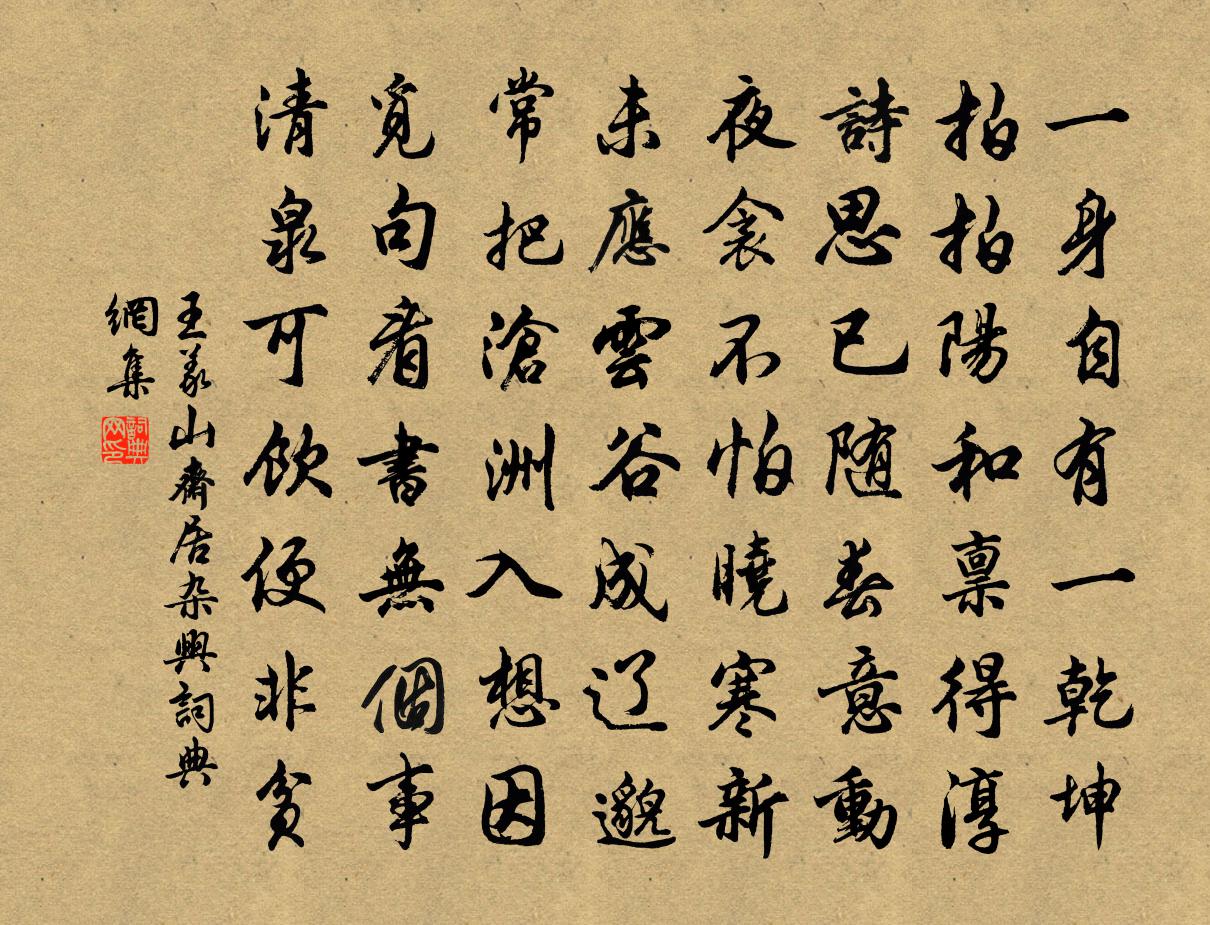 一身自有一乾坤
拍拍陽和禀得淳
詩思已随春意動
夜衾不怕曉寒新
未應雲谷成辽邈
常把滄洲入想因
覓句看書無個事
清泉可飲便非貧
王義山齋居杂興詞典
網集
詞典
网印